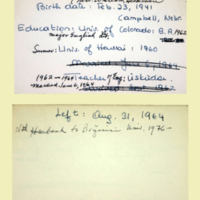 Birth date: Feb. 23, 1941
Campbell, Nebr.
Education: Univ. of Colorado: B.A. 1962
major English Lit.
Summer: Univ. of Hawaii: 1960
1962-1964: Teacher of Eng. Üsküdar
Married June 6, 1964
Left: Aug. 31, 1964
with husband to
Univ. 1976-